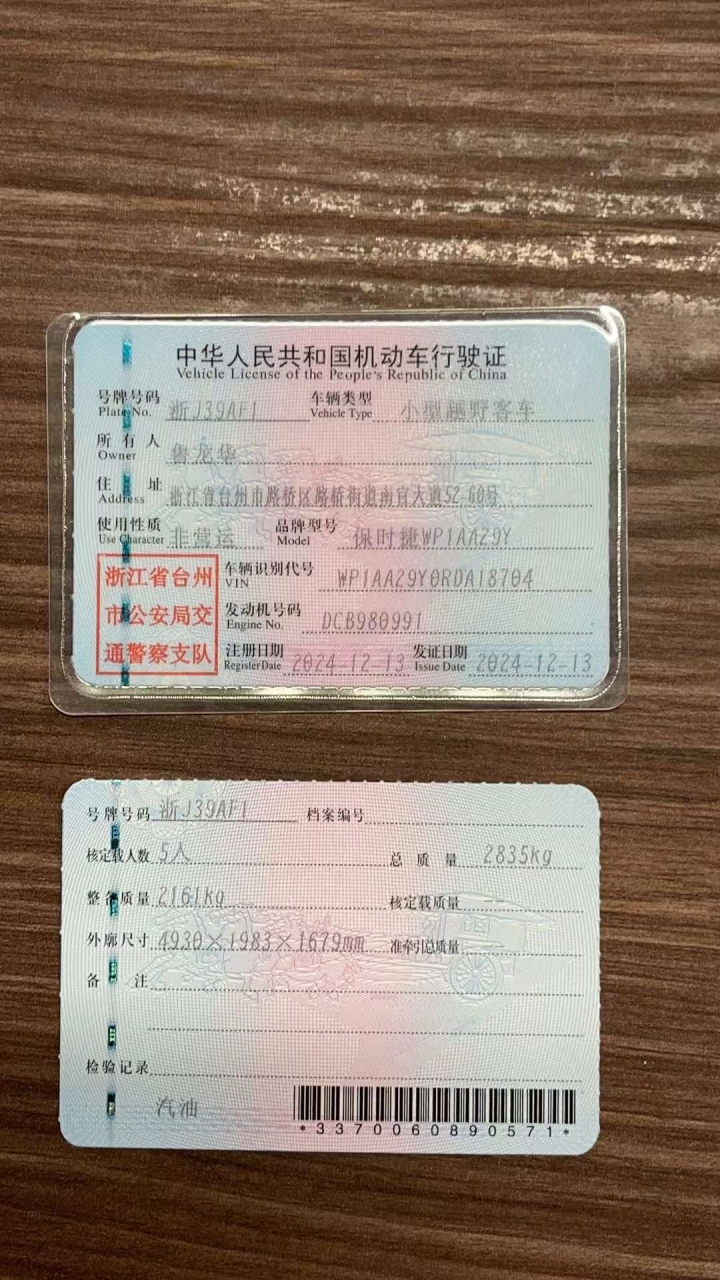 中华人民共和国机动车行驶证
Vehicle License of the People's Republic of China
号牌号码 浙J39AF1 车辆类型 小型越野客车
Plate No. Vehicle Type
所有人 鲁龙华
Owner
住址 浙江省台州市路桥区路桥街道南官大道52-60号
Address
使用性质 非营运 品牌型号 保时捷WP1AA29Y
Use Character Model
浙江省台州
市公安局交
通警察支队
车辆识别代号 WP1AA29Y0RDA18704
VIN
发动机号码 DCB980991
Engine No.
注册日期 2024-12-13 发证日期 2024-12-13
Register Date Issue Date
号牌号码 浙J39AF1 档案编号
核定载人数 5人 总质量 2835kg
整备质量 2161kg 核定载质量 --
外廓尺寸 4930×1983×1679mm 准牵引总质量
备注
检验记录
汽油
*3370060890571*